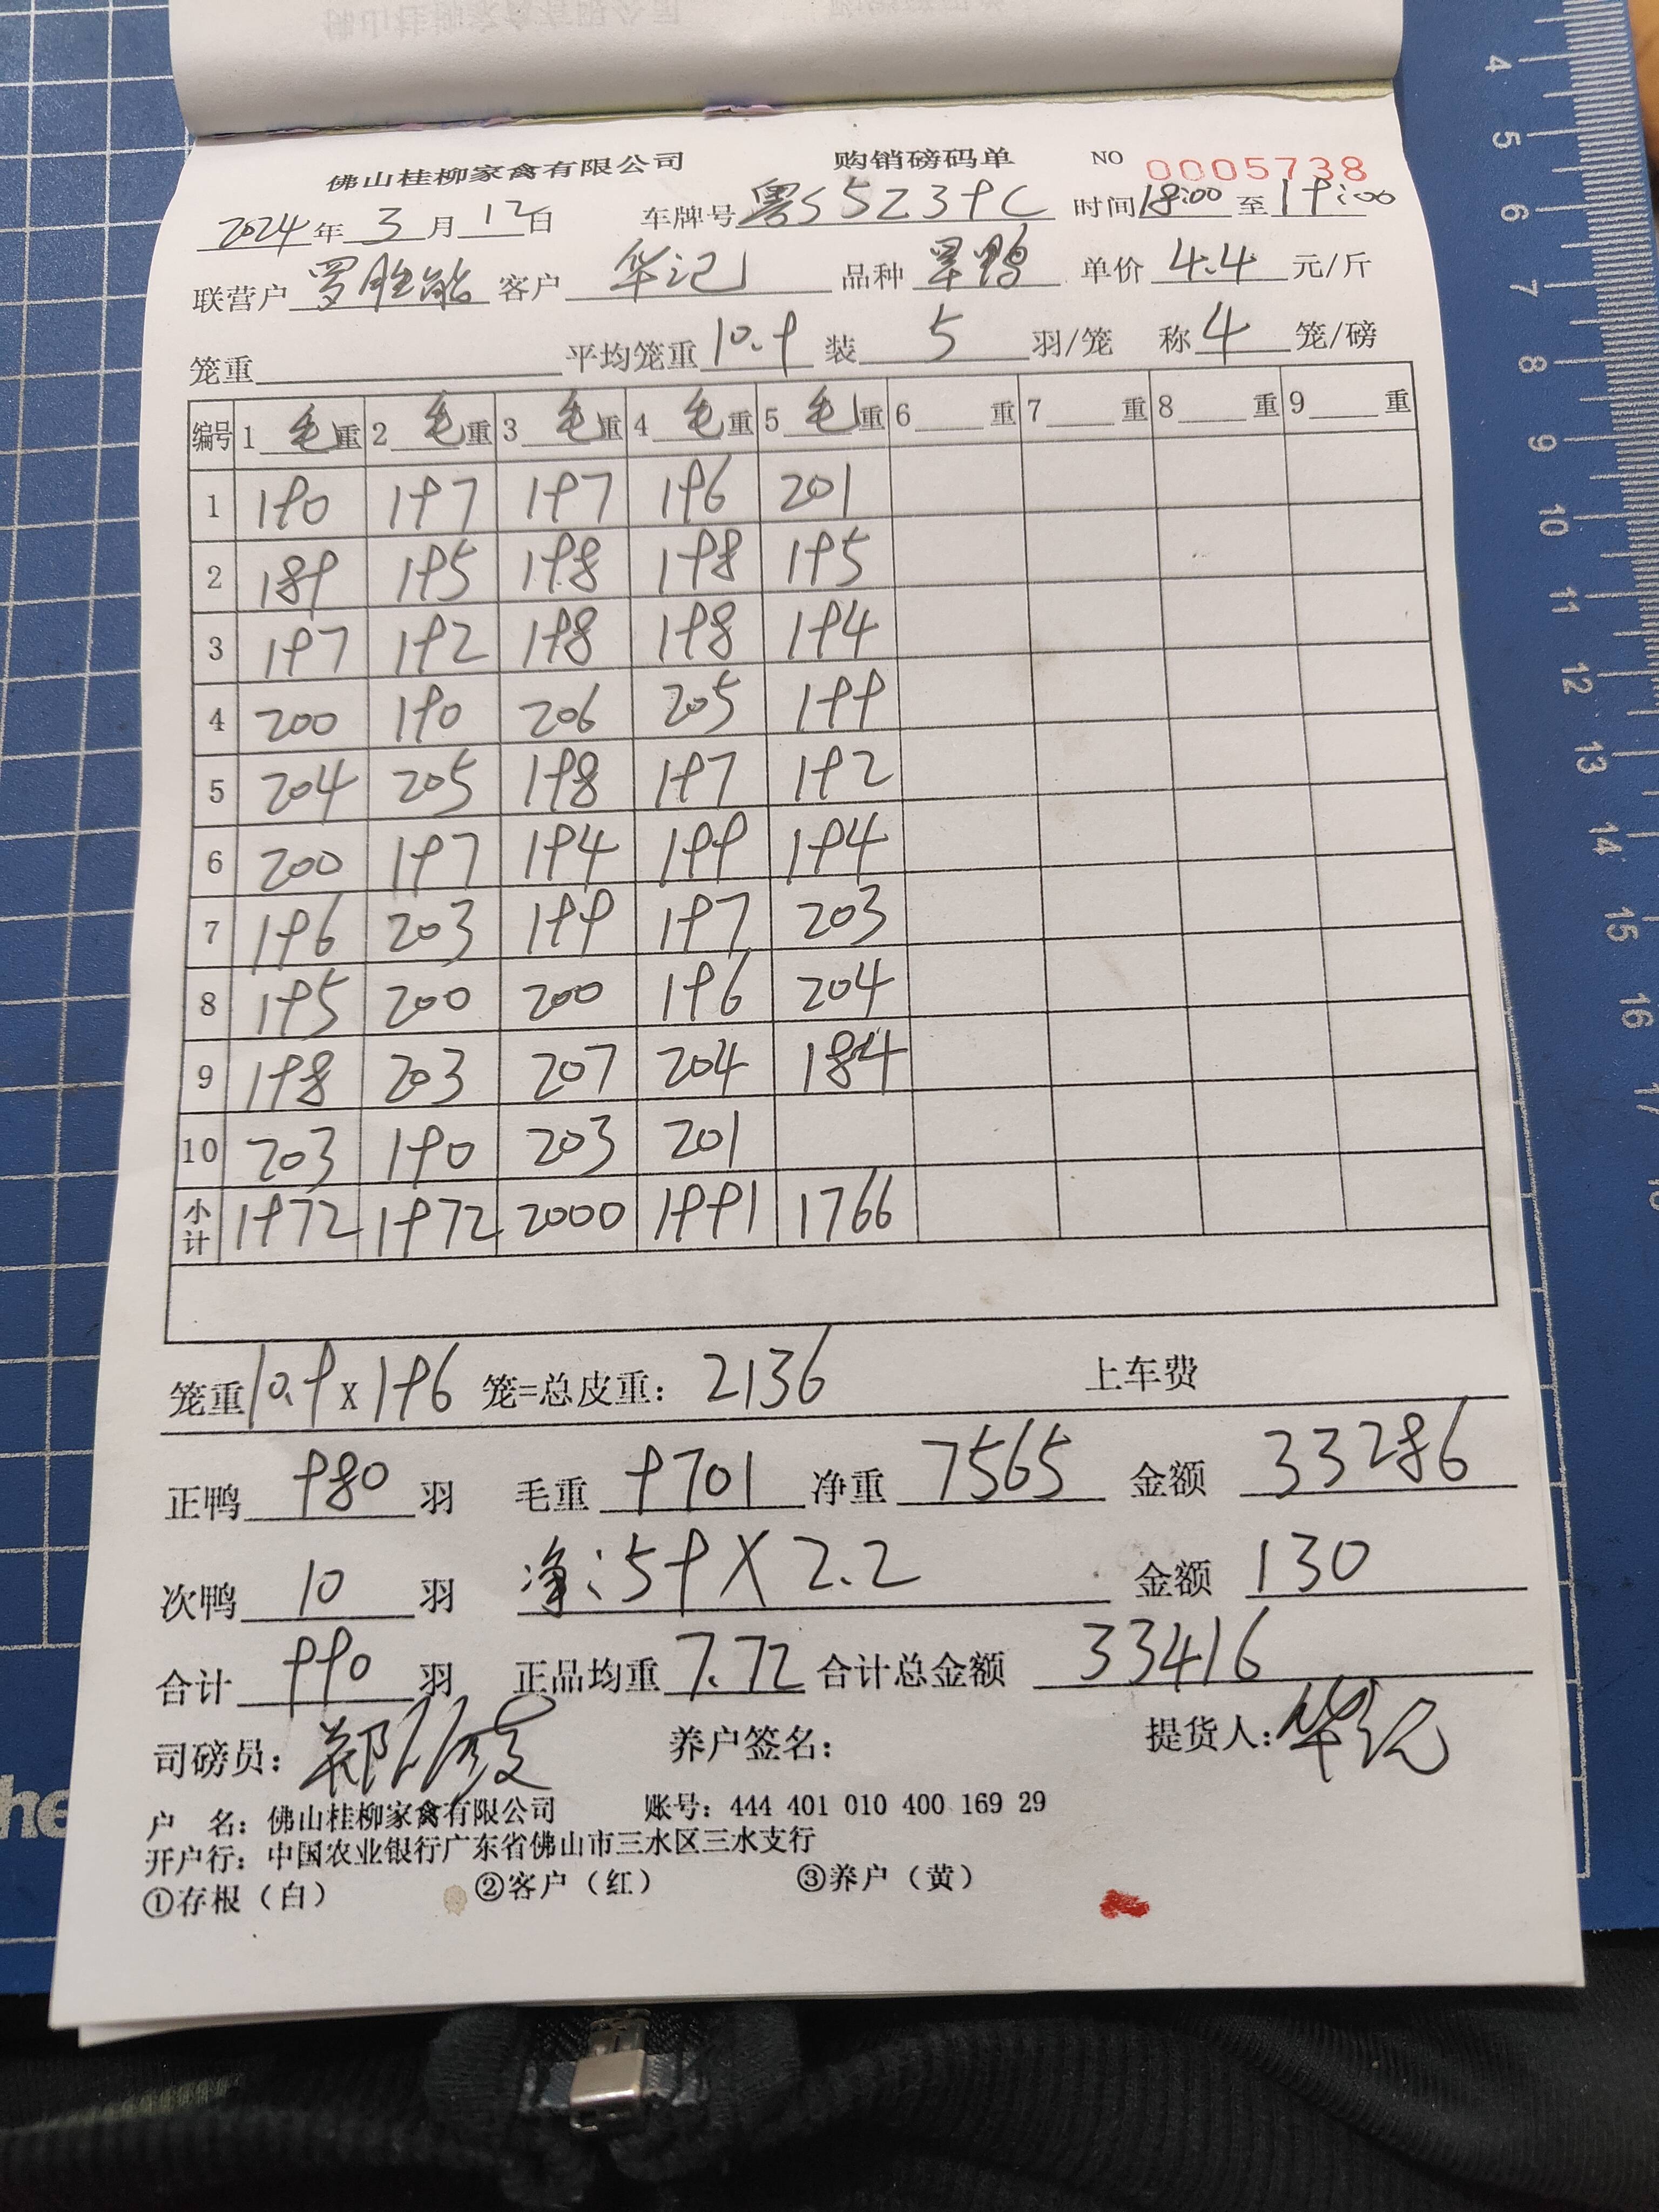 佛山桂柳家禽有限公司 购销磅码单 NO 0005738
2024年3月12日 车牌号粤S5Z39C 时间18:00至19:00
联营户罗胜能 客户华记 品种旱鸭 单价4.4元/斤
笼重 平均笼重10.9装5羽/笼 称4笼/磅
编号 1毛重 2毛重 3毛重 4毛重 5毛重 6重 7重 8重 9重
1 190 197 197 196 201
2 189 195 198 198 195
3 197 192 198 198 194
4 200 190 206 205 199
5 204 205 198 197 192
6 200 197 194 199 194
7 196 203 199 197 203
8 195 200 200 196 204
9 198 203 207 204 184
10 203 190 203 201
小计 1972 1972 2000 1991 1766
笼重10.9x196笼=总皮重：2136 上车费
正鸭980羽 毛重9701净重7565 金额33286
次鸭10羽 净:59X2.2 金额130
合计990羽 正品均重7.72合计总金额33416
司磅员：郑 养户签名： 提货人：华记
户 名：佛山桂柳家禽有限公司 账号：444 401 010 400 169 29
开户行：中国农业银行广东省佛山市三水区三水支行
①存根（白） ②客户（红） ③养户（黄）
4
5
6
7
8
9
10
11
12
13
14
15
16
17
he